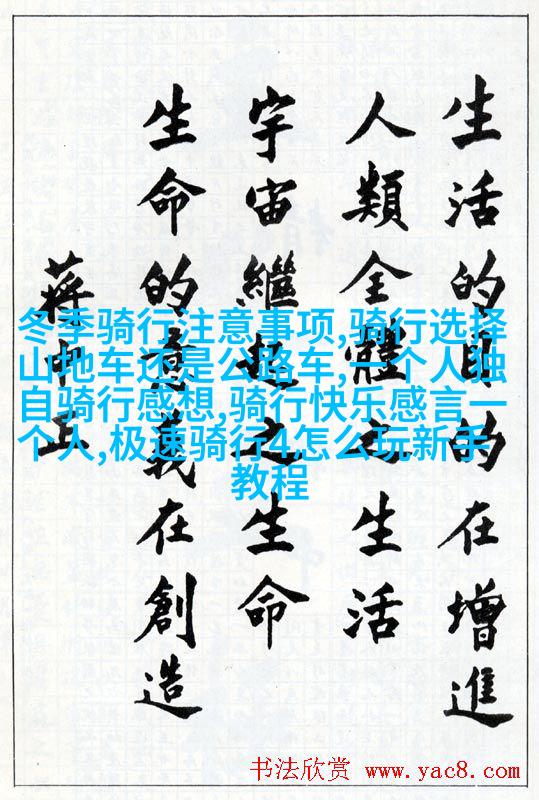 生活的目的在增進
人類全體之生活
生命的意義在創造
宇宙繼起之生命
蔣中正
冬季骑行注意事项,骑行选择
山地车还是公路车,一个人独
自骑行感想,骑行快乐感言一
个人,极速骑行4怎么玩新手
教程
书法欣赏 www.yac8.com